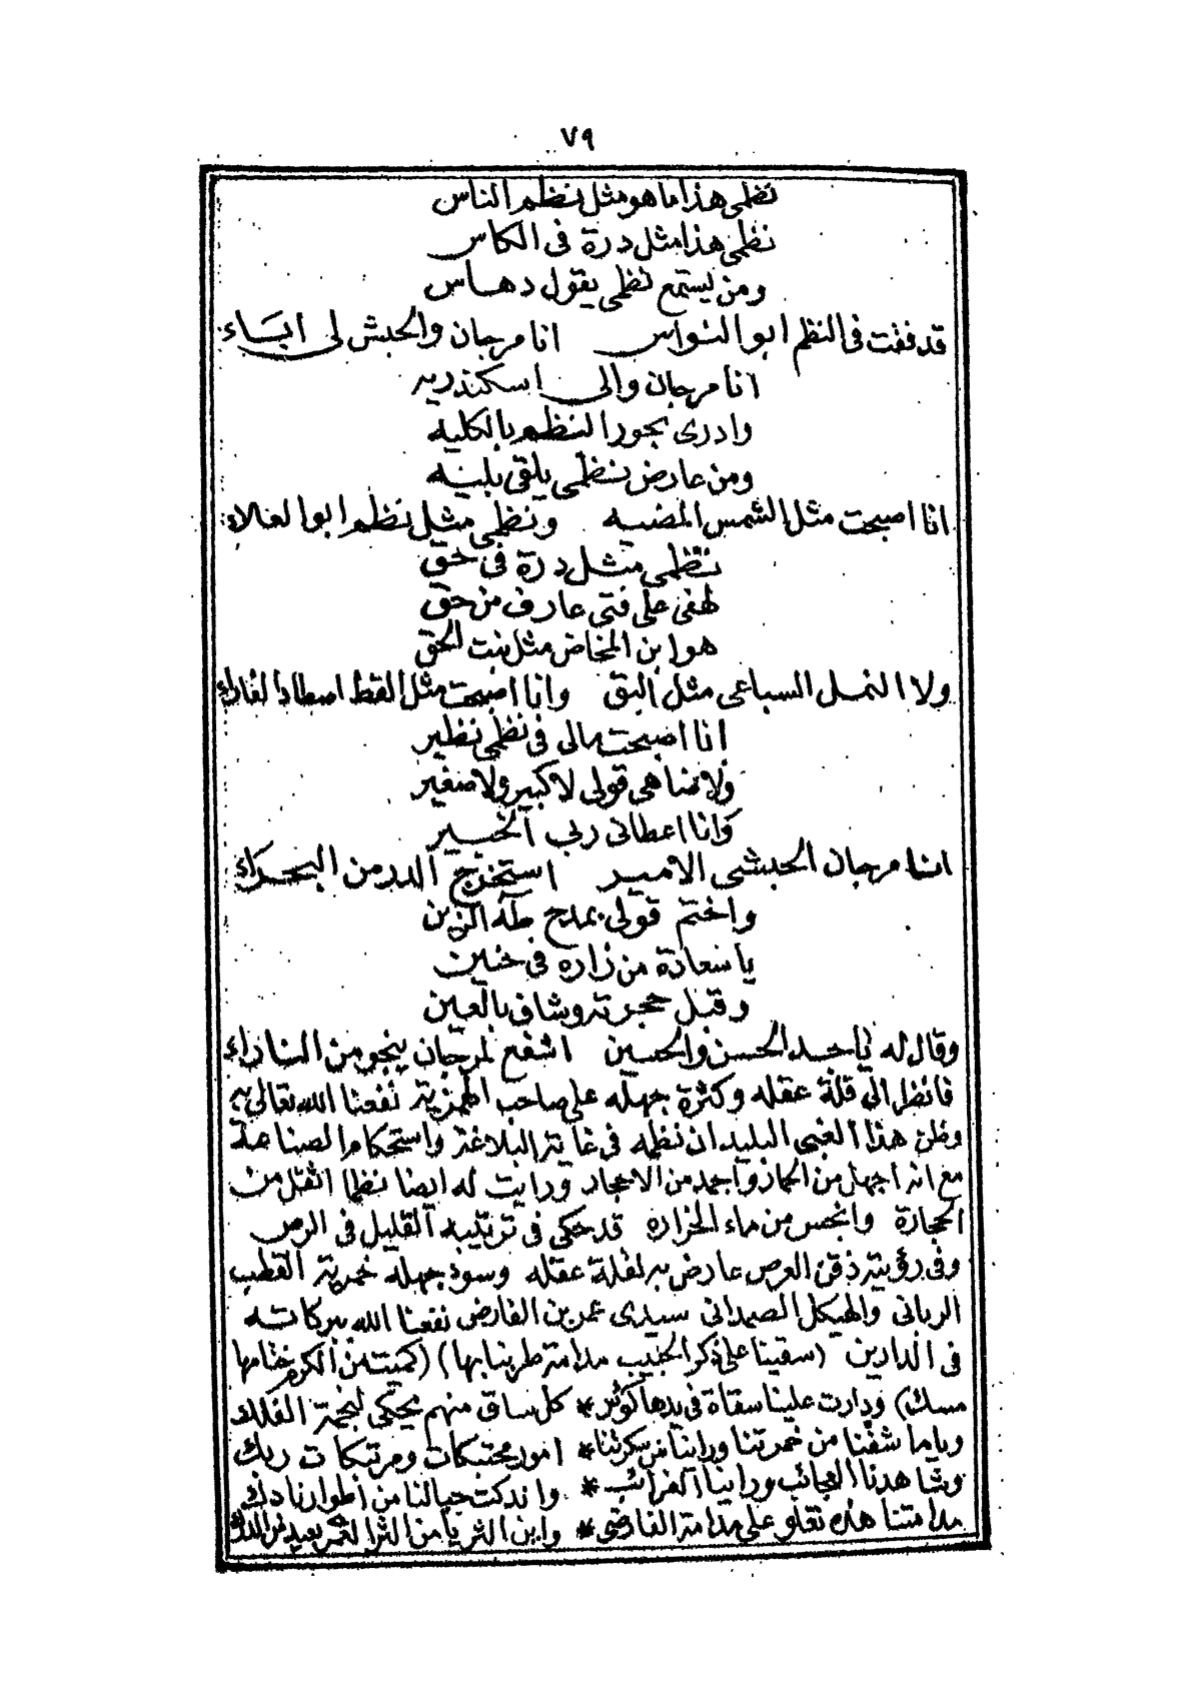 ٧٩
نظمى هذا ما هو مثل نظم الناس
نظمى هذا مثل درة فى الكاس
ومن يستمع نظمى يقول دهاس
قد فقت فى النظم ابو النواس انا مرجان والحبش لى ابساء
انا مرجان والى اسكندريه
وادرى بحور النظم بالكليه
ومن عارض نظمى يلقى بليه
انا اصبحت مثل الشمس المضيه ونظمى مثل نظم ابو العلاء
نظمى مثل درة فى حق
لهفى على فتى عارف من حق
هو ابن المخاض مثل بنت الحق
ولا النمل السباعى مثل البق وانا اصبحت مثل القط اصطاد الفاراء
انا اصبحت مالى فى نظمى نظير
ولا ضاهى قولى لا كبير ولا صغير
وانا اعطانى ربى الخير
انا مرجان الحبشى الامير استخرج الدر من البحراء
واختم قولى بمدح طه الزين
يا سعادة من زاره فى حنين
وقبل حجرته وشاف بالعين
وقال له يا جد الحسن والحسين اشفع لمرجان ينجو من الناراء
فانظر الى قلة عقله وكثرة جهله على صاحب الهمزية نفعنا الله تعالى به
وظن هذا الغبى البليد ان نظمه فى غاية البلاغة واستحكام الصناعة
مع انه اجهل من الحمار واجمد من الاحجار ورايت له ايضا نظما اثقل من
الحجارة وانجس من ماء الخراره قد حكى فى ترتيبه القليل فى الرص
وفى رؤيته ذقن العرص عارض به لقلة عقله وسوء جهله خمرية القطب
الربانى والهيكل الصمدانى سيدى عمر بن الفارض نفعنا الله ببركاته
فى الدارين (سقينا على ذكر الحبيب مدامة طربنا بها) (كميت من الكرم ختامها
مسك) ودارت علينا سقاة فى يدها كوئس * كل ساق منهم يحكى لنجمة الفلك
وياما شفنا من خمرتنا وراينا من سكرتنا * امور محتبكات ومرتبكات ربك
وشاهدنا العجائب وراينا الغرائب * واندكت جبالنا من أطوارنا دك
مدامتنا هذه تعلو على مدامة الفارضى * واين الثريا من الثرا بعيد